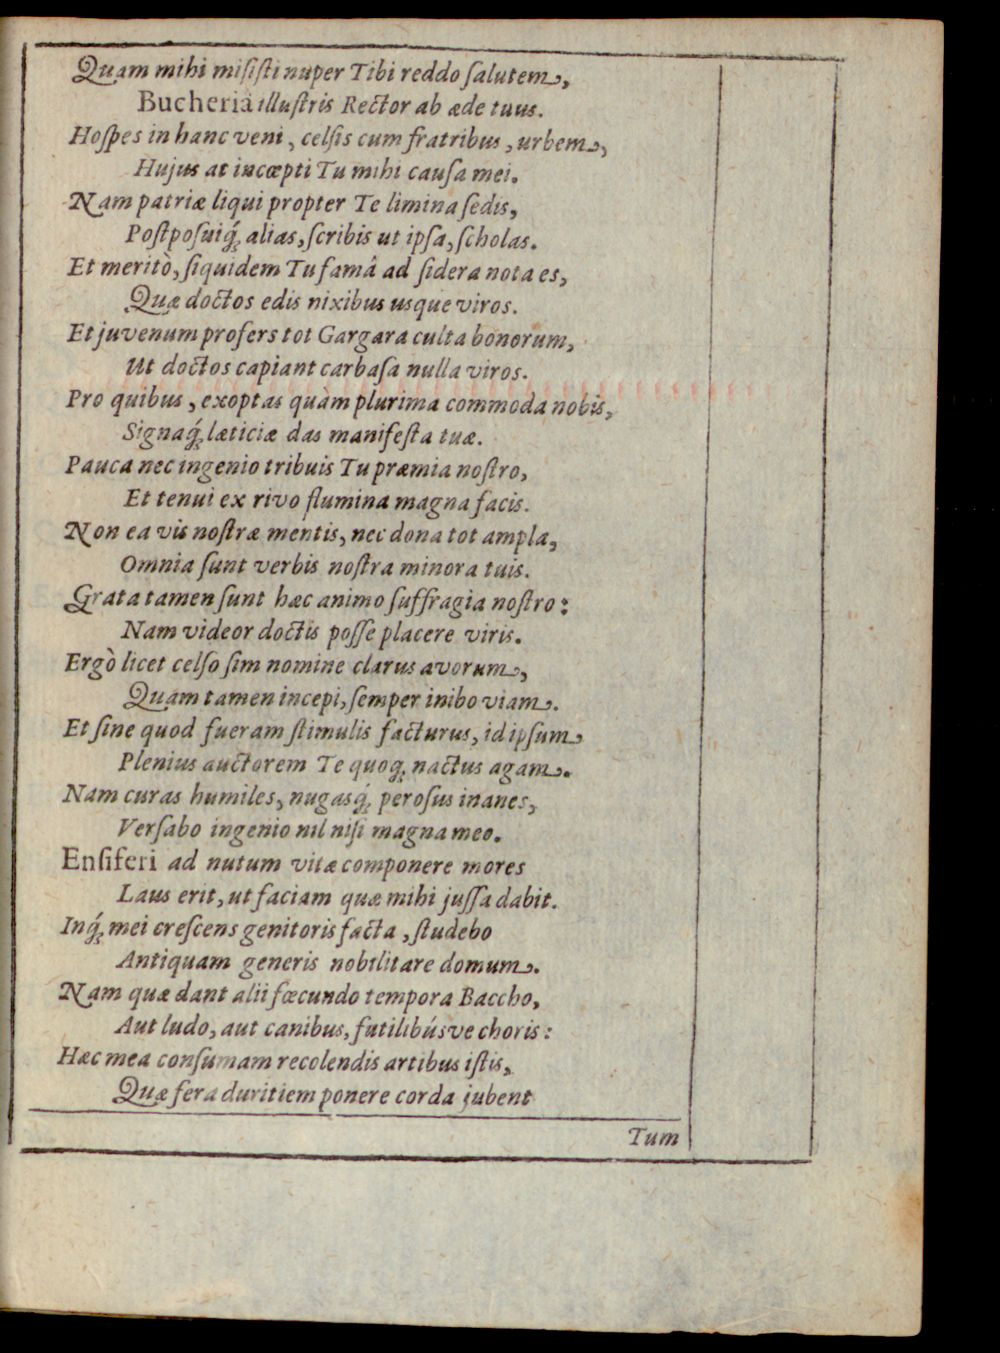 Quam mihi misiſti nuper Tibi reddo ſalutem,
Bucheriâ illuſtris Rector ab æde tuus.
Hoſpes in hanc veni, celſis cum fratribus, urbem,
Hujus at incœpti Tu mihi cauſa mei.
Nam patriæ liqui propter Te limina ſedis,
Poſtpoſuiq́; alias, ſcribis ut ipſa, ſcholas.
Et meritò, ſiquidem Tu famâ ad ſidera nota es,
Quæ doctos edis nixibus usque viros.
Et juvenum profers tot Gargara culta bonorum,
Ut doctos capiant carbaſa nulla viros.
Pro quibus, exoptas quàm plurima commoda nobis,
Signaq́; læticiæ das manifeſta tuæ.
Pauca nec ingenio tribuis Tu præmia noſtro,
Et tenui ex rivo flumina magna facis.
Non ea vis noſtræ mentis, nec dona tot ampla,
Omnia ſunt verbis noſtra minora tuis.
Grata tamen ſunt hæc animo ſuffragia noſtro:
Nam videor doctis poſſe placere viris.
Ergò licet celſo ſim nomine clarus avorum,
Quam tamen incepi, ſemper inibo viam.
Et ſine quod fueram ſtimulis facturus, id ipſum
Plenius auctorem Te quoq; nactus agam.
Nam curas humiles, nugasq́; peroſus inanes,
Verſabo ingenio nil niſi magna meo.
Enſiferi ad nutum vitæ componere mores
Laus erit, ut faciam quæ mihi juſſa dabit.
Inq́; mei creſcens genitoris facta, ſtudebo
Antiquam generis nobilitare domum.
Nam quæ dant alii fœcundo tempora Baccho,
Aut ludo, aut canibus, futilibúsve choris:
Hæc mea conſumam recolendis artibus iſtis,
Quæ fera duritiem ponere corda jubent
Tum